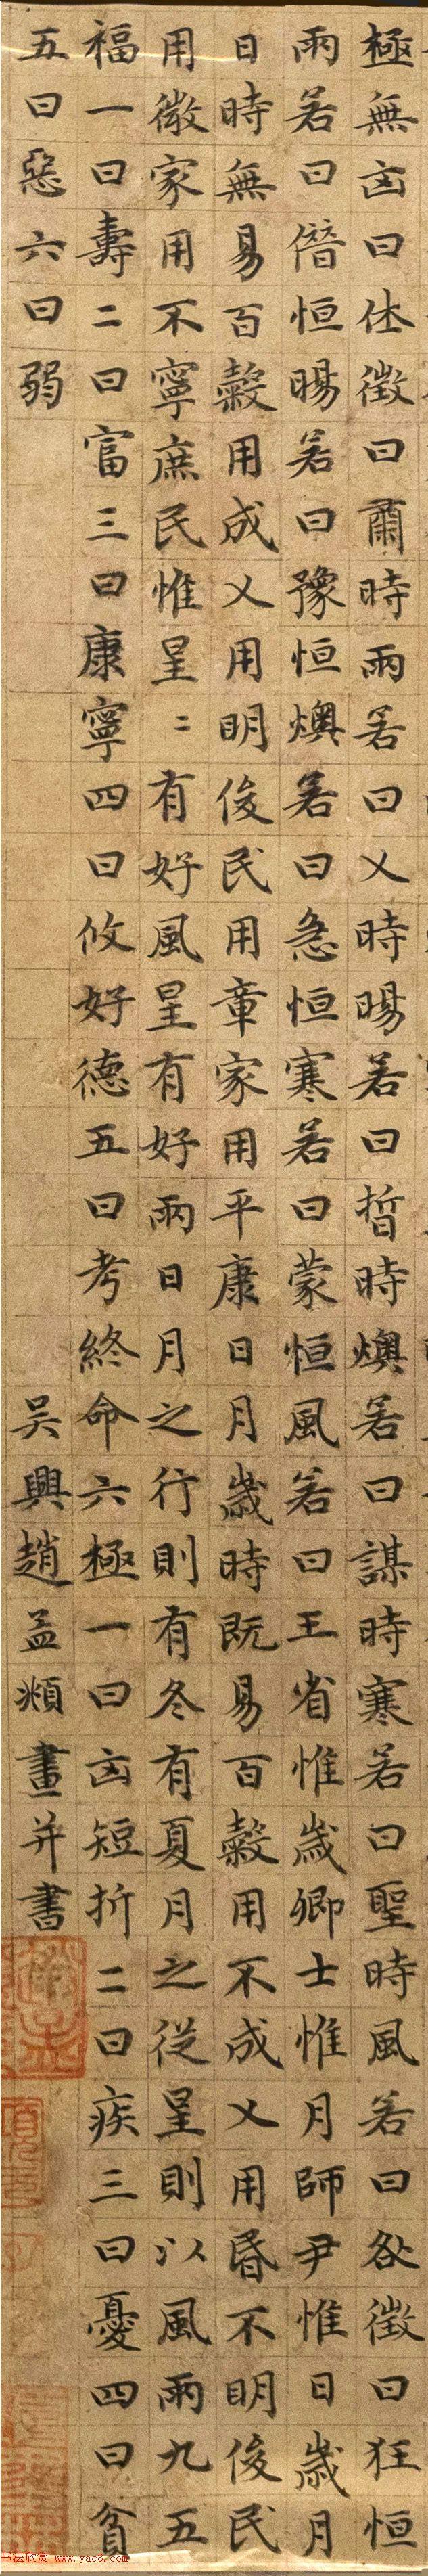 極無㐫曰休徵曰肅時雨若曰乂時暘若曰晢時燠若曰謀時寒若曰聖時風若曰咎徵曰狂恒
雨若曰僣恒暘若曰豫恒燠若曰急恒寒若曰蒙恒風若曰王省惟歲卿士惟月師尹惟日歲月
日時無易百穀用成乂用明俊民用章家用平康日月歲時既易百穀用不成乂用昏不明俊民
用微家用不寧庶民惟星〻有好風星有好雨日月之行則有冬有夏月之從星則以風雨九五
福一曰壽二曰富三曰康寧四曰攸好德五曰考終命六極一曰㐫短折二曰疾三曰憂四曰貧
五曰惡六曰弱 吴興趙孟頫畫并書
书法欣赏 www.yac8.com